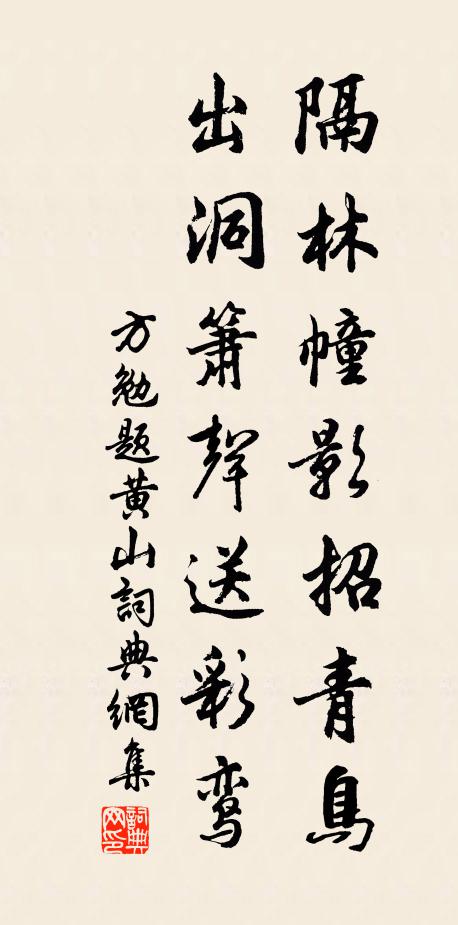 隔林幢影招青鳥
出洞簫聲送彩鸾
方勉题黄山詞典網集
詞典网印